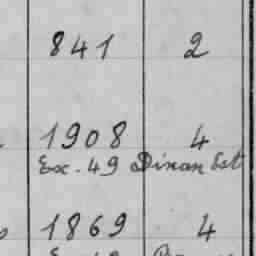 841 2
1908 4
Ex. 49 Dinan Est
1869 4